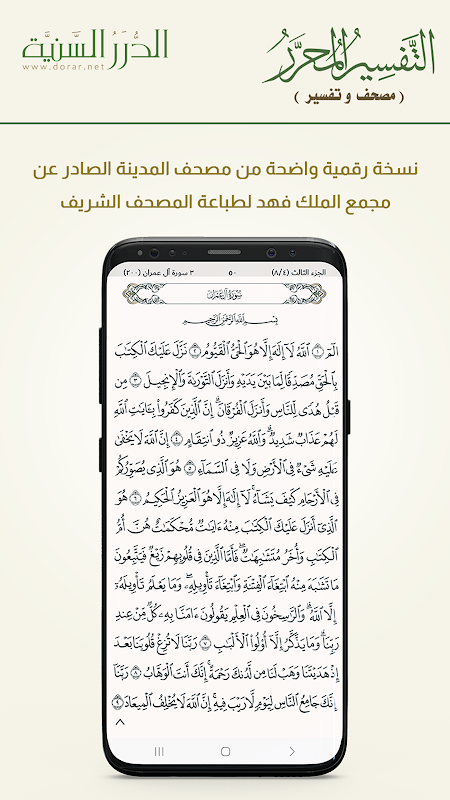 الدرر السنية
www.dorar.net
التفسير المحرر
( مصحف و تفسير )
نسخة رقمية واضحة من مصحف المدينة الصادر عن
مجمع الملك فهد لطباعة المصحف الشريف
الجزء الثالث (٨/٤) ٥٠ ٣ سورة آل عمران (٢٠٠)
سورة آل عمران
بسم الله الرحمن الرحيم
الٓمٓ ١ ٱللَّهُ لَآ إِلَٰهَ إِلَّا هُوَ ٱلْحَىُّ ٱلْقَيُّومُ ٢ نَزَّلَ عَلَيْكَ ٱلْكِتَٰبَ
بِٱلْحَقِّ مُصَدِّقًا لِّمَا بَيْنَ يَدَيْهِ وَأَنزَلَ ٱلتَّوْرَىٰةَ وَٱلْإِنجِيلَ ٣ مِن
قَبْلُ هُدًى لِّلنَّاسِ وَأَنزَلَ ٱلْفُرْقَانَۗ إِنَّ ٱلَّذِينَ كَفَرُوا۟ بِـَٔايَٰتِ ٱللَّهِ
لَهُمْ عَذَابٌ شَدِيدٌۗ وَٱللَّهُ عَزِيزٌ ذُو ٱنتِقَامٍ ٤ إِنَّ ٱللَّهَ لَا يَخْفَىٰ
عَلَيْهِ شَىْءٌ فِى ٱلْأَرْضِ وَلَا فِى ٱلسَّمَآءِ ٥ هُوَ ٱلَّذِى يُصَوِّرُكُمْ
فِى ٱلْأَرْحَامِ كَيْفَ يَشَآءُۚ لَآ إِلَٰهَ إِلَّا هُوَ ٱلْعَزِيزُ ٱلْحَكِيمُ ٦ هُوَ
ٱلَّذِىٓ أَنزَلَ عَلَيْكَ ٱلْكِتَٰبَ مِنْهُ ءَايَٰتٌ مُّحْكَمَٰتٌ هُنَّ أُمُّ
ٱلْكِتَٰبِ وَأُخَرُ مُتَشَٰبِهَٰتٌۖ فَأَمَّا ٱلَّذِينَ فِى قُلُوبِهِمْ زَيْغٌ فَيَتَّبِعُونَ
مَا تَشَٰبَهَ مِنْهُ ٱبْتِغَآءَ ٱلْفِتْنَةِ وَٱبْتِغَآءَ تَأْوِيلِهِۦۗ وَمَا يَعْلَمُ تَأْوِيلَهُۥٓ
إِلَّا ٱللَّهُۗ وَٱلرَّٰسِخُونَ فِى ٱلْعِلْمِ يَقُولُونَ ءَامَنَّا بِهِۦ كُلٌّ مِّنْ عِندِ
رَبِّنَاۗ وَمَا يَذَّكَّرُ إِلَّآ أُو۟لُوا۟ ٱلْأَلْبَٰبِ ٧ رَبَّنَا لَا تُزِغْ قُلُوبَنَا بَعْدَ
إِذْ هَدَيْتَنَا وَهَبْ لَنَا مِن لَّدُنكَ رَحْمَةًۚ إِنَّكَ أَنتَ ٱلْوَهَّابُ ٨ رَبَّنَآ
إِنَّكَ جَامِعُ ٱلنَّاسِ لِيَوْمٍ لَّا رَيْبَ فِيهِۚ إِنَّ ٱللَّهَ لَا يُخْلِفُ ٱلْمِيعَادَ ٩